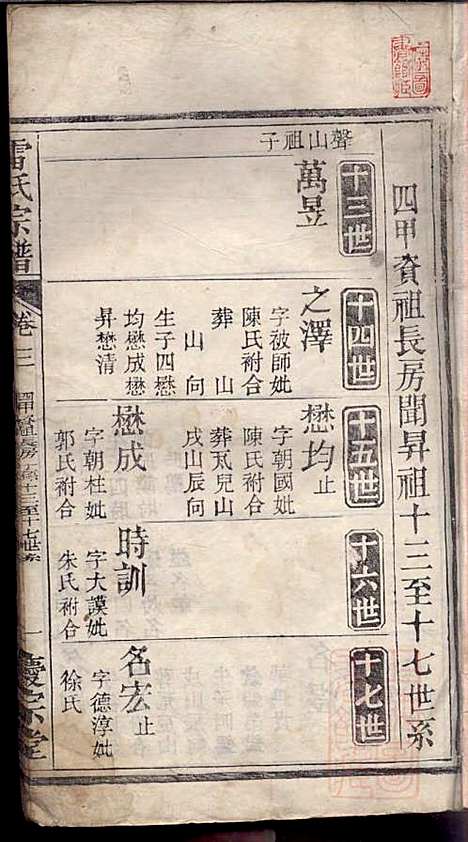 四甲賓祖長房聞昇祖十三至十七世系
十三世
十四世
十五世
十六世
十七世
聲山祖子
萬昱
之澤
字被師妣
陳氏祔合
葬 山
山 向
生子四懋
均懋成懋
昇懋清
懋均止
字朝國妣
陳氏祔合
葬瓦兒山
戌山辰向
懋成
字朝柱妣
郭氏祔合
時訓
字大謨妣
朱氏祔合
名宏止
字德淳妣
徐氏
雷氏宗譜
卷三
十三至十七世系
一
慶宗堂